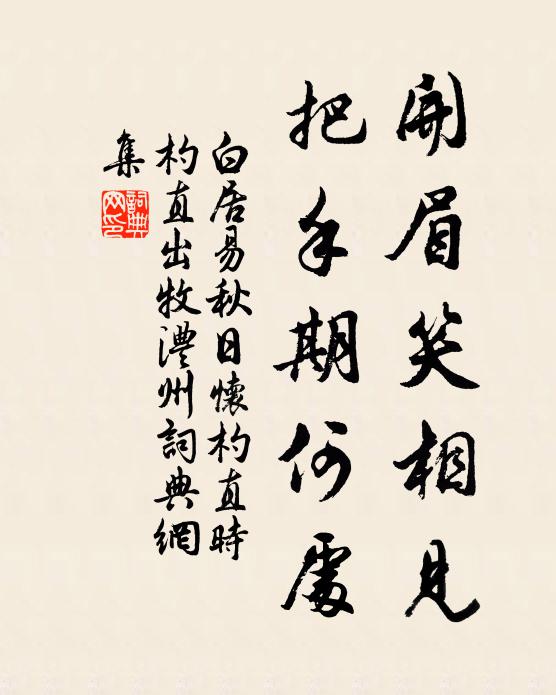 開眉笑相見
把手期何處
白居易秋日懷杓直時
杓直出牧澧州詞典網
集
詞典
网印